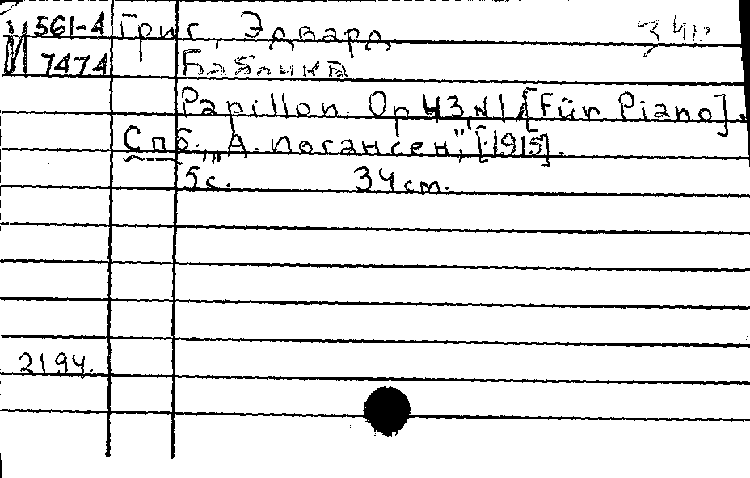 М 561-4 Григ, Эдвард 3 ч
7474 Бабочка
Papillon. Op 43, N 1 [für Piano].
Спб., "А. Иогансен", [1915].
5с. 34 cm.
2194.